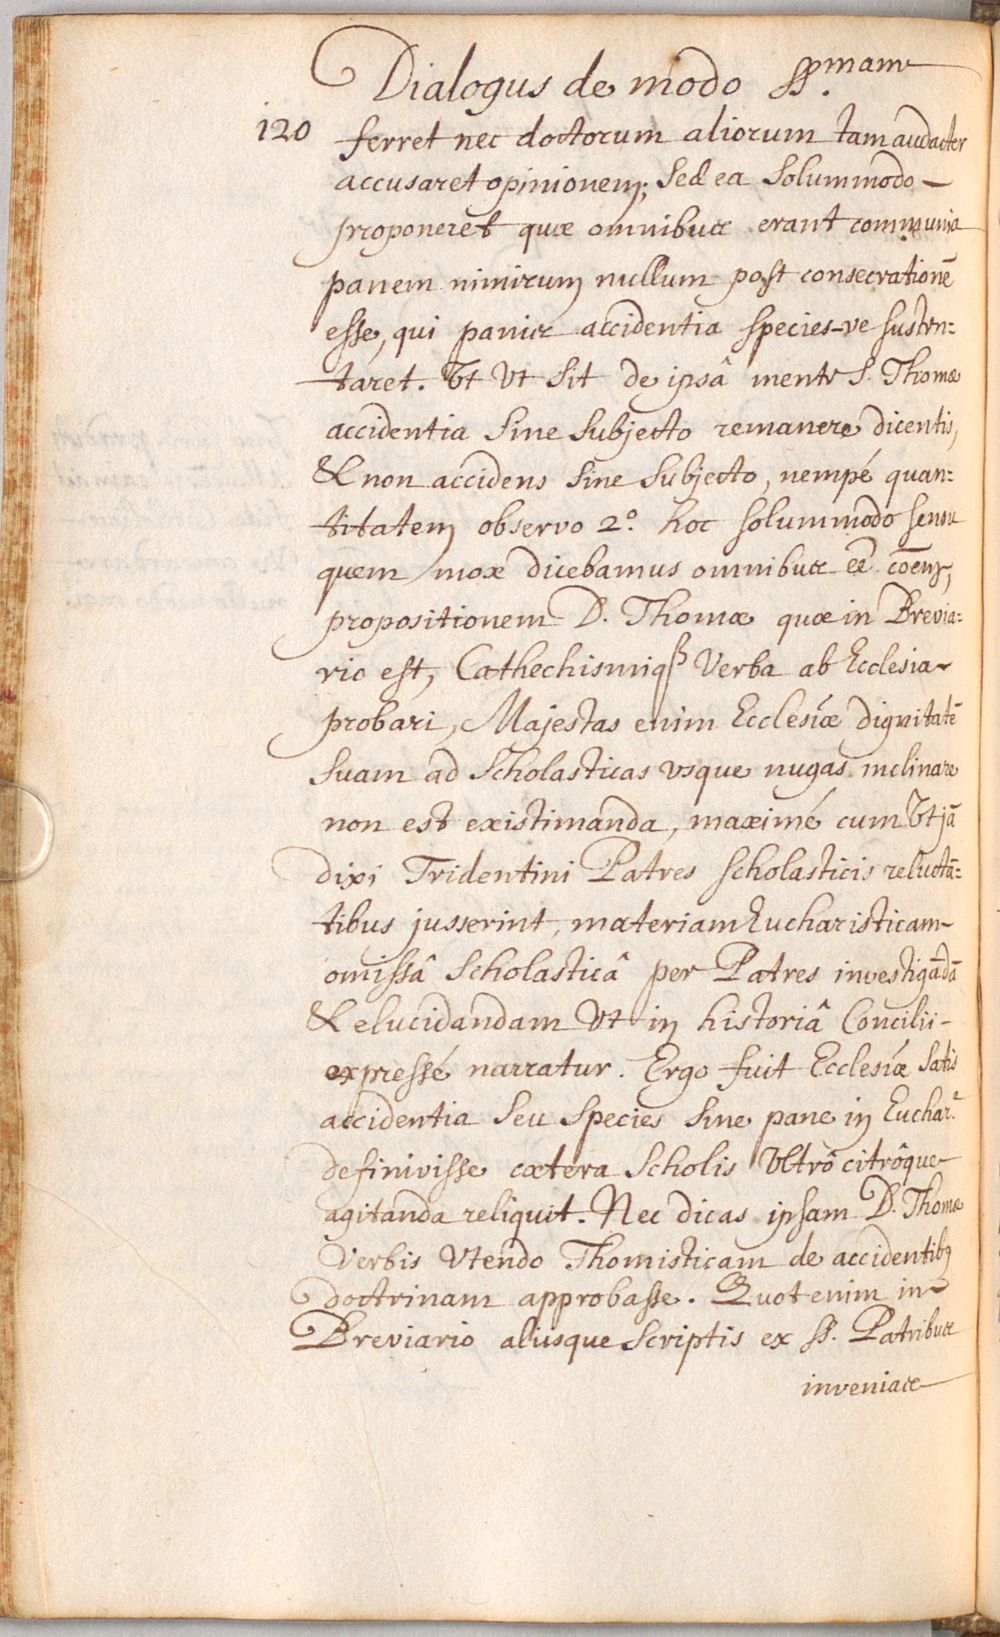 Dialogus de modo SS.mam
120
ferret nec doctorum aliorum tam audacter
accusaret opinionem; Sed ea Solummodo
proponeret quæ omnibus erant communia
panem nimirum nullum post consecrationē
esse, qui panis accidentia species-ve susten=
taret. Vt Vt Sit de ipsâ mente S. Thomæ
accidentia Sine Subjecto remanere dicentis,
& non accidens Sine Subjecto, nempé quan=
titatem observo 2.º hoc solummodo sensu
quem mox dicebamus omnibus eē
propositionem D. Thomæ quæ in Brevia=
rio est, Cathechismiqȝ Verba ab Ecclesia
probari, Majestas enim Ecclesiæ dignitatē
Suam ad Scholasticas vsque nugas inclinare
non est existimanda, maximé cum Vt jā
dixi Tridentini Patres scholasticis reluctā=
tibus jusserint, materiam Eucharisticam
omissâ Scholasticâ per Patres investigādā
& elucidandam Vt in historiâ Concilii
expressé narratur. Ergo fuit Ecclesiæ Satis
accidentia Seu Species Sine pane in Euchar.ª
definivisse cætera Scholis Vltrô citrôque
agitanda reliquit. Nec dicas ipsam D. Thomæ
Verbis Vtendo Thomisticam de accidentibȝ
doctrinam approbasse. Quot enim in
Breviario aliisque Scriptis ex SS. Patribus
invenias